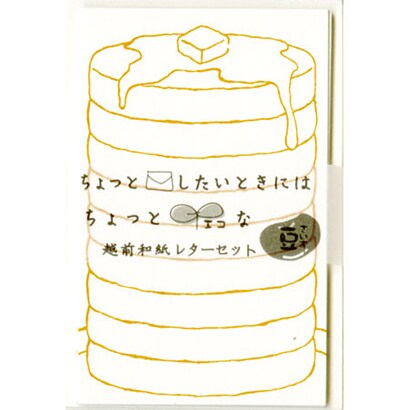 ちょっと したいときには
ちょっと エコな
越前和紙レターセット
豆
ていず